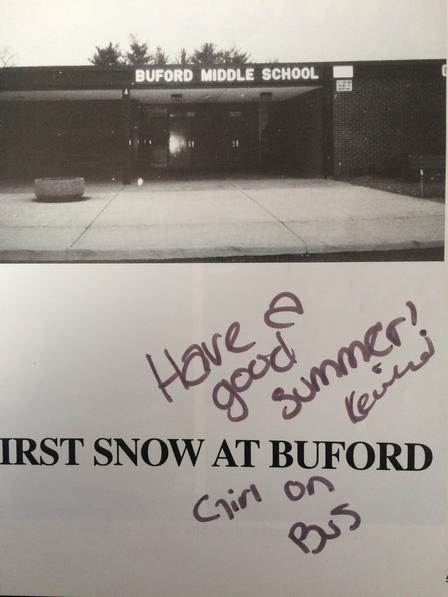 BUFORD MIDDLE SCHOOL
Have a
good
summer!
IRST SNOW AT BUFORD
Girl on
Bus